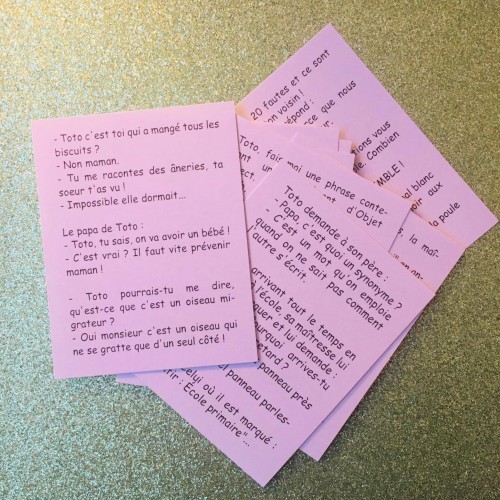 - Toto c'est toi qui a mangé tous les
biscuits ?
- Non maman.
- Tu me racontes des âneries, ta
soeur t'as vu !
- Impossible elle dormait...
Le papa de Toto :
- Toto, tu sais, on va avoir un bébé !
- C'est vrai ? Il faut vite prévenir
maman !
- Toto pourrais-tu me dire,
qu'est-ce que c'est un oiseau mi-
grateur ?
- Oui monsieur c'est un oiseau qui
ne se gratte que d'un seul côté !
Toto demande à son père :
- Papa, c'est quoi un synonyme ?
- C'est un mot qu'on emploie
quand on ne sait pas comment
l'autre s'écrit.
arrivant tout le temps en
l'école, sa maîtresse lui
quer et lui demande :
ourquoi arrives-tu
retard ?
panneau près
panneau parles-
celui où il est marqué :
rir : École primaire"...
Toto, fais moi une phrase conte-
ect, un
d'Objet
20 fautes et ce sont
on voisin !
épond :
ce que nous
ons vous
e. Combien
MBLE !
al blanc
oir aux
la poule
s, la maî-